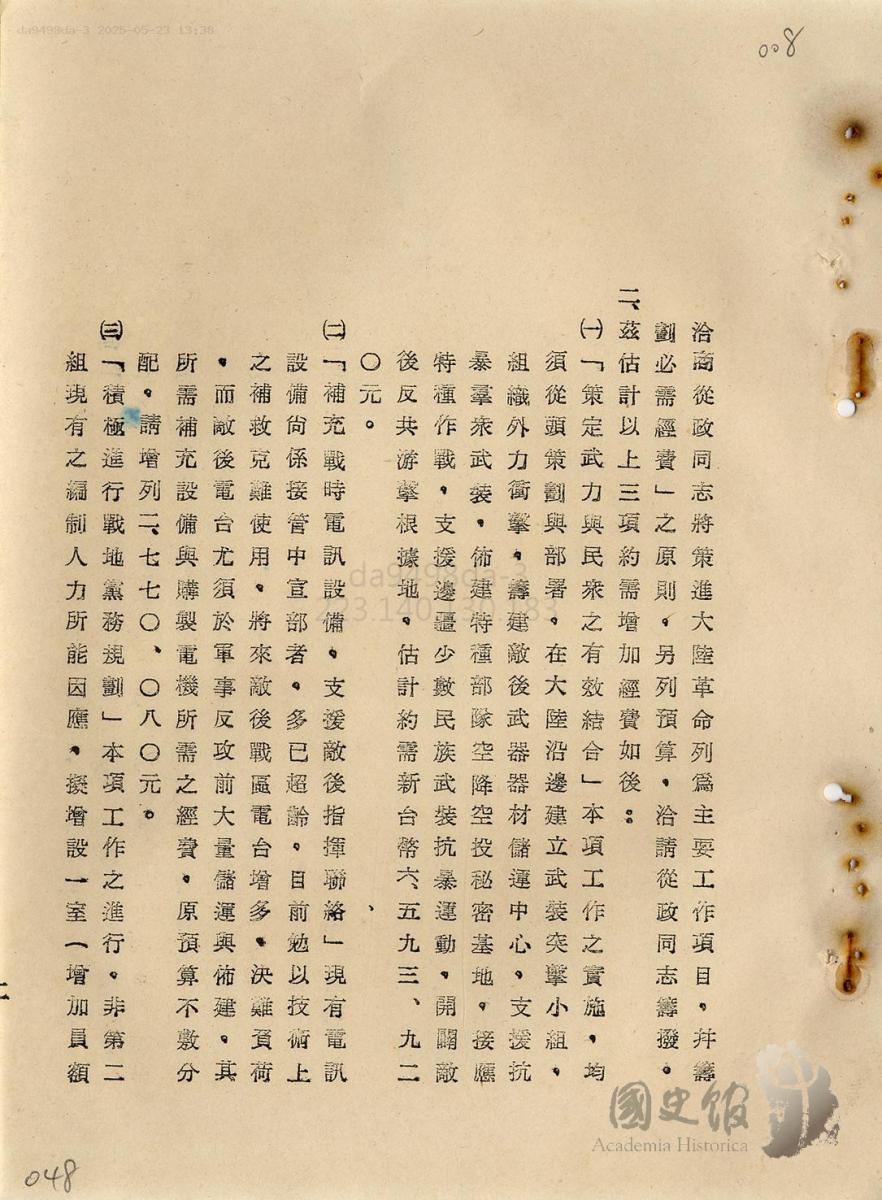 da9498da-3 2025-05-23 13:38
008
洽商從政同志將策進大陸革命列為主要工作項目，幷籌
劃必需經費」之原則，另列預算，洽請從政同志籌撥。
二、茲估計以上三項約需增加經費如後：
㈠「策定武力與民衆之有效結合」本項工作之實施，均
須從頭策劃與部署，在大陸沿邊建立武裝突擊小組，
組織外力衝擊，籌建敵後武器器材儲運中心，支援抗
暴羣衆武裝，佈建特種部隊空降空投秘密基地，接應
特種作戰，支援邊疆少數民族武裝抗暴運動，開闢敵
後反共游擊根據地，估計約需新台幣六、五九三、九二
〇元。
㈡「補充戰時電訊設備，支援敵後指揮聯絡」現有電訊
設備尙係接管中宣部者，多已超齡，目前勉以技術上
之補救克難使用，將來敵後戰區電台增多，決難負荷
，而敵後電台尤須於軍事反攻前大量儲運與佈建，其
所需補充設備與購製電機所需之經費，原預算不敷分
配，請增列二、七七〇、〇八〇元。
㈢「積極進行戰地黨務規劃」本項工作之進行，非第二
組現有之編制人力所能因應，擬增設一室（增加員額
二
da9498da-3
048
國史館
Academia Historica